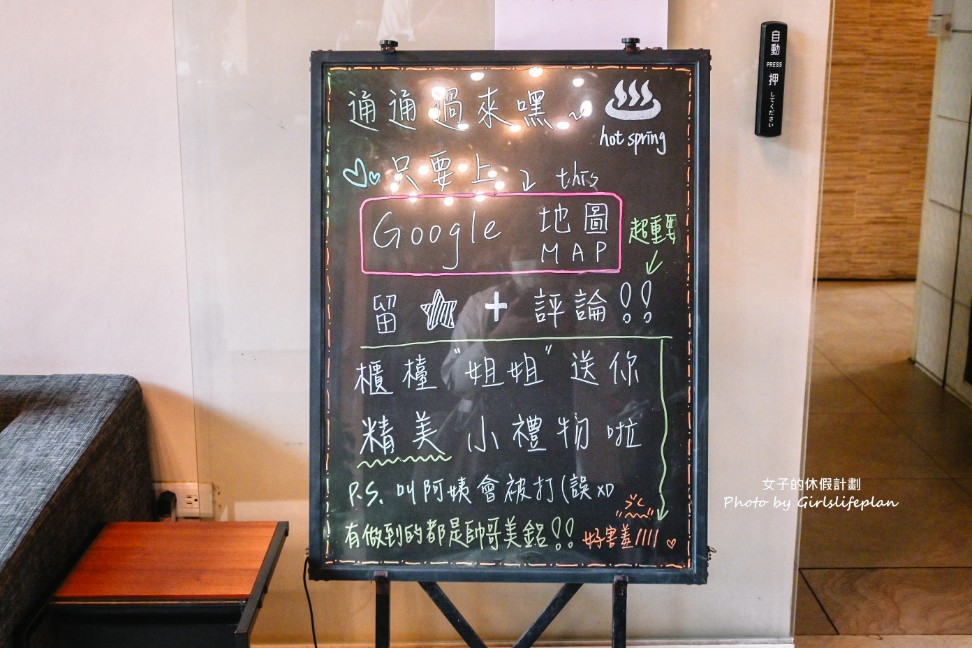 通通過來嘿~
hot spring
只要上 this
Google 地圖
MAP
超重要
留 + 評論!!
櫃檯"姐姐"送你
精美小禮物啦
P.S. 叫阿姨會被打(誤 XD
有做到的都是帥哥美鋁!!
好害羞////
自動
PRESS
押
してください
女子的休假計劃
Photo by Girlslifeplan